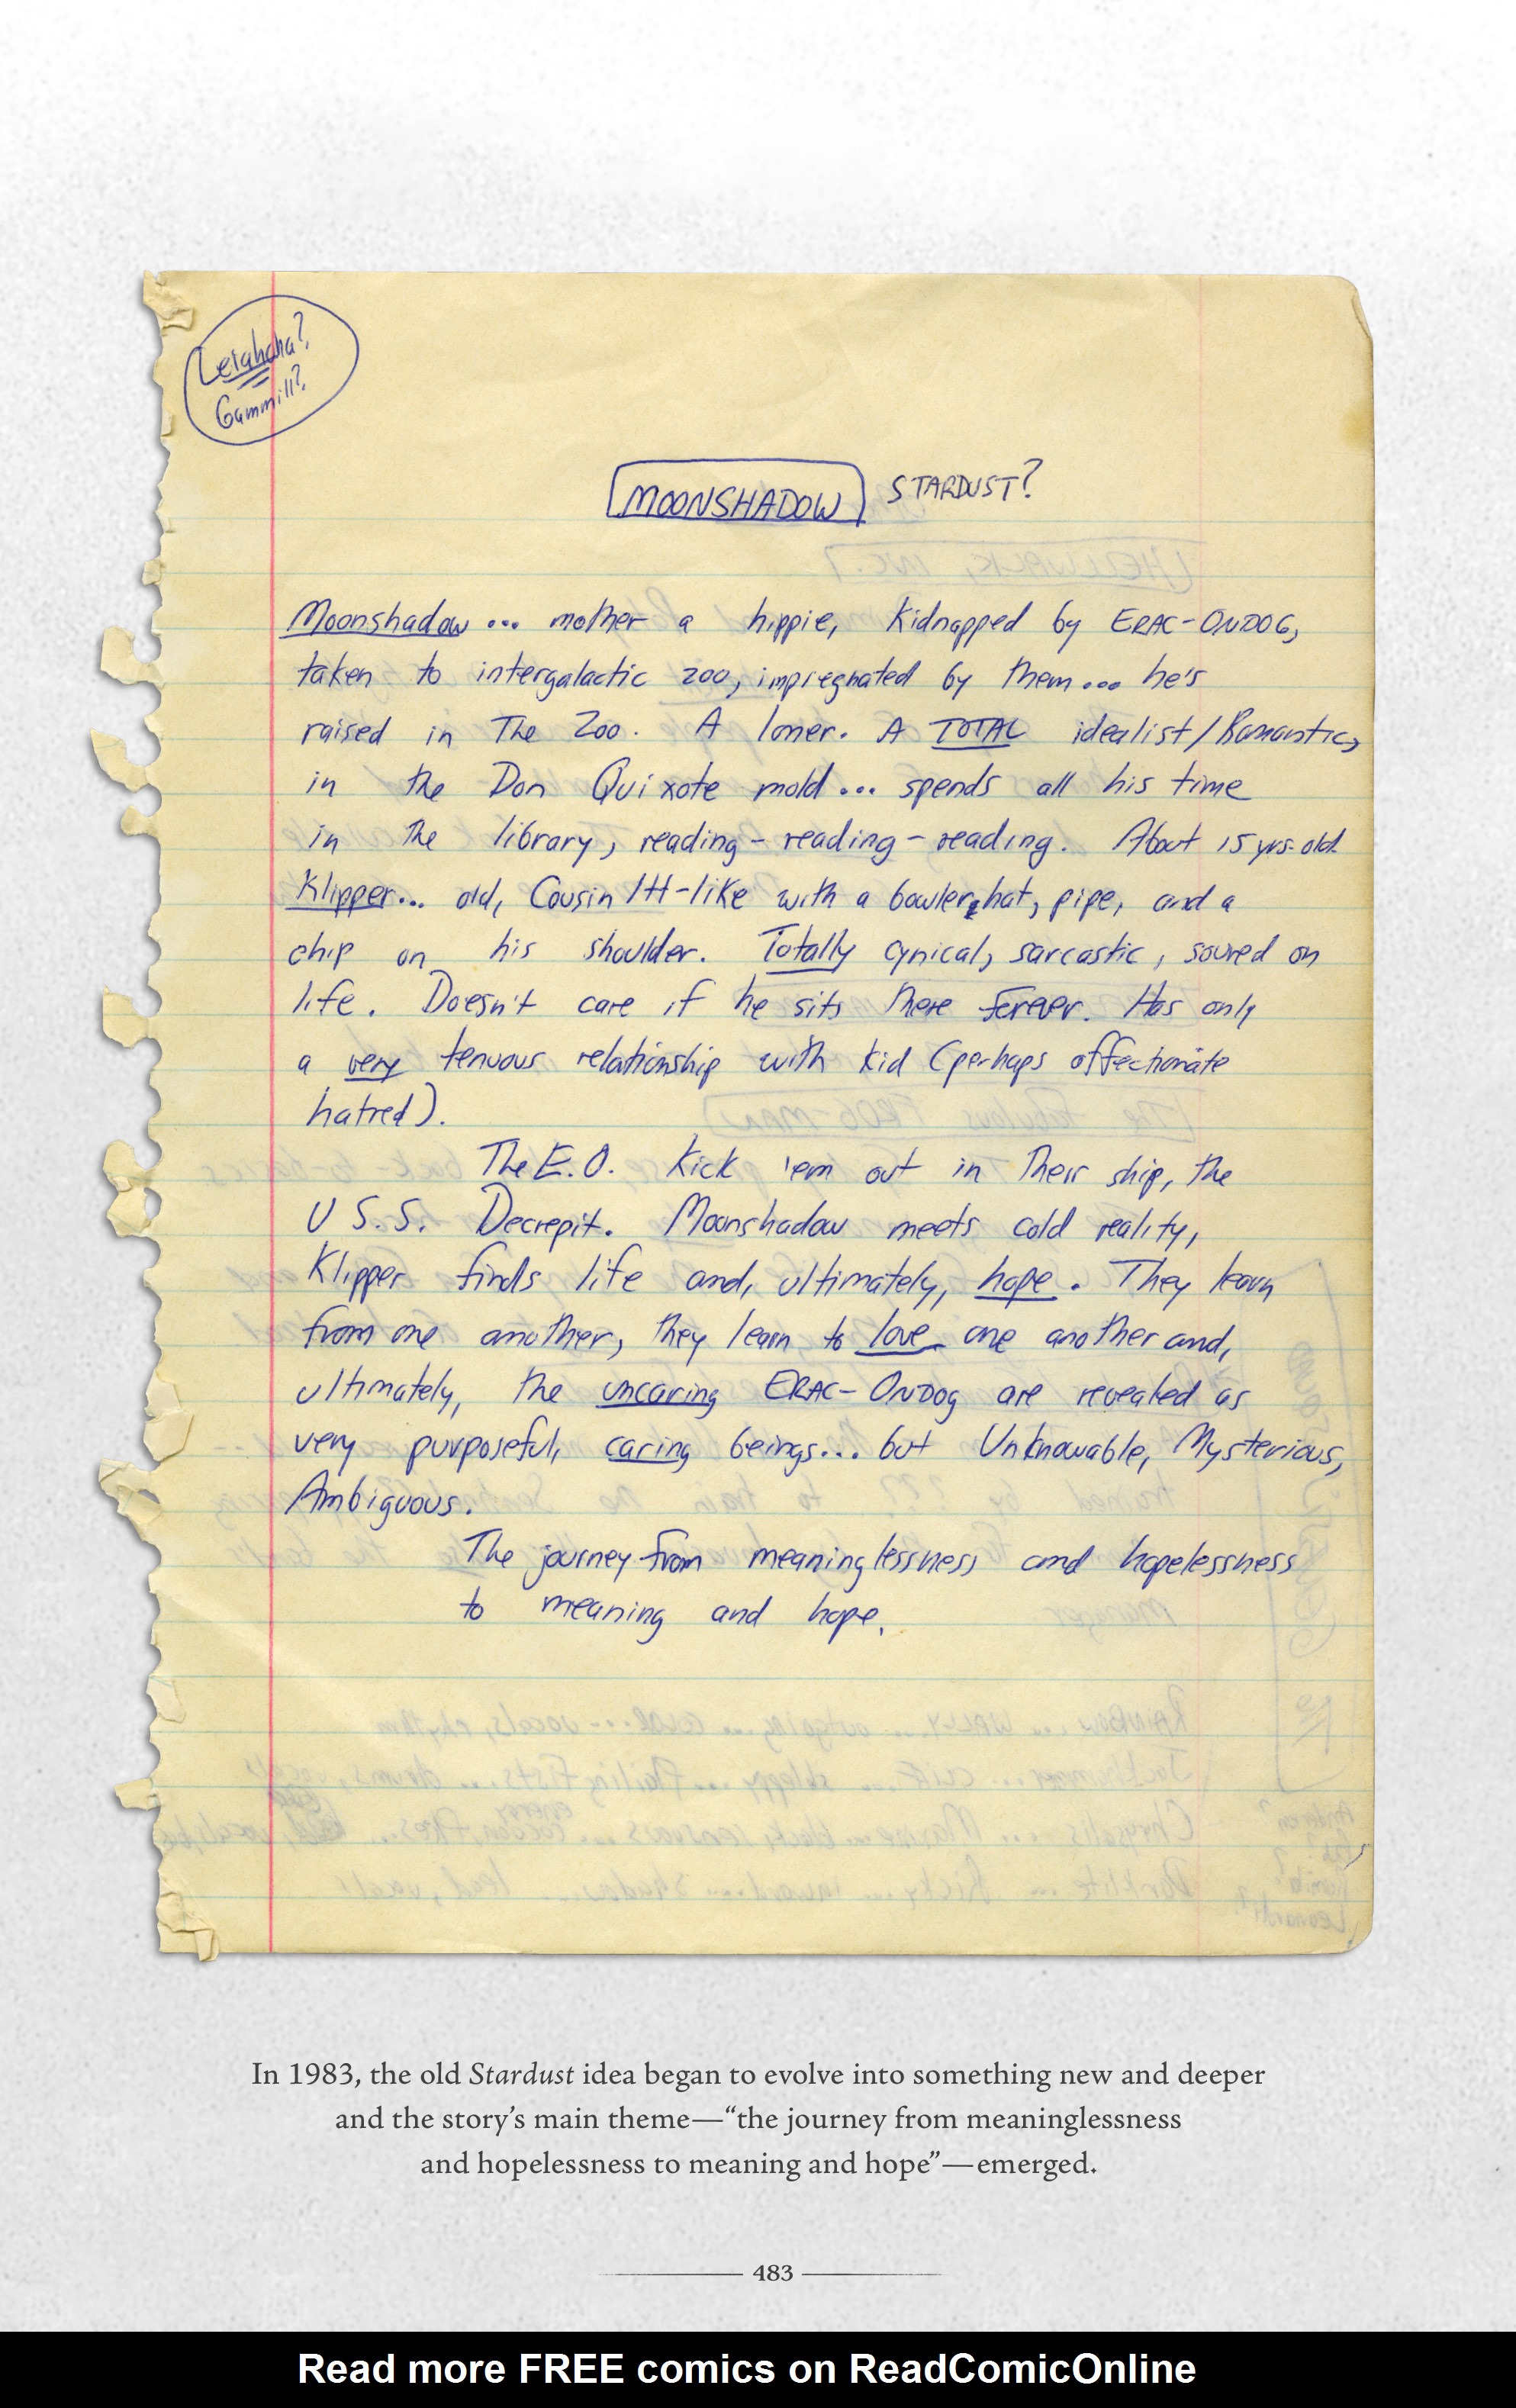 Leialoha?
Gammill?
MOONSHADOW STARDUST?
Moonshadow... mother a hippie, kidnapped by ERAC-ONDOG,
taken to intergalactic zoo, impregnated by them... he's
raised in the Zoo. A loner. A TOTAL idealist/Romantic,
in the Don Quixote mold... spends all his time
in the library, reading-reading-reading. About 15 yrs. old.
Klipper... old, Cousin Itt-like with a bowler hat, pipe, and a
chip on his shoulder. Totally cynical, sarcastic, soured on
life. Doesn't care if he sits there forever. Has only
a very tenuous relationship with kid (perhaps affectionate
hatred).
The E.O. kick 'em out in their ship, the
U.S.S. Decrepit. Moonshadow meets cold reality,
Klipper finds life and, ultimately, hope. They learn
from one another, they learn to love one another and,
ultimately, the uncaring ERAC-ONDOG are revealed as
very purposeful, caring beings... but Unknowable, Mysterious,
Ambiguous.
The journey from meaninglessness and hopelessness
to meaning and hope.
In 1983, the old Stardust idea began to evolve into something new and deeper
and the story's main theme—“the journey from meaninglessness
and hopelessness to meaning and hope”—emerged.
483
Read more FREE comics on ReadComicOnline